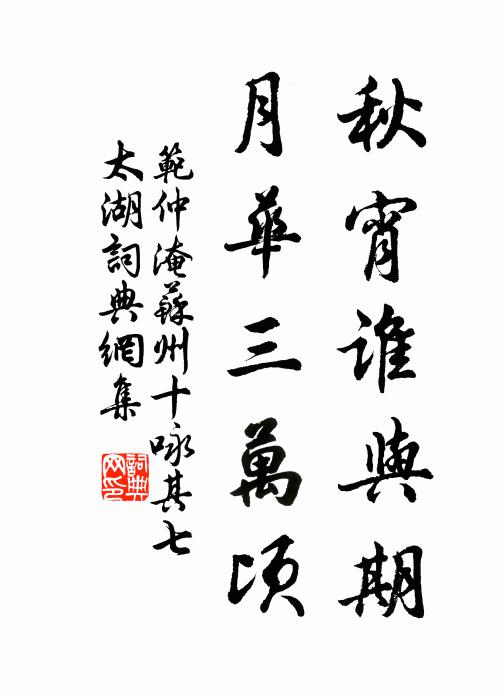 秋宵誰與期
月華三萬頃
範仲淹蘇州十咏其七
太湖詞典網集
詞典网印